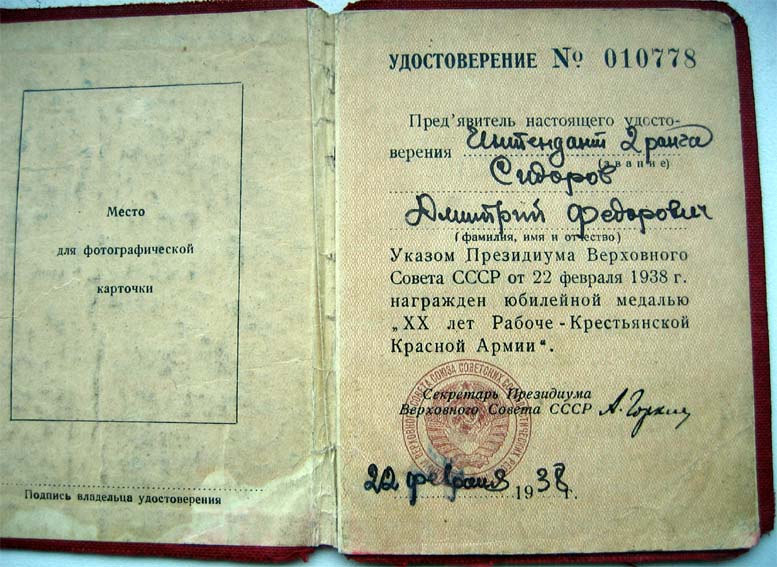 Место
для фотографической
карточки
Подпись владельца удостоверения
УДОСТОВЕРЕНИЕ № 010778
Пред'явитель настоящего удосто-
верения Интендант 2 ранга
(звание)
Сидоров
Дмитрий Федорович
(фамилия, имя и отчество)
Указом Президиума Верховного
Совета СССР от 22 февраля 1938 г.
награжден юбилейной медалью
„XX лет Рабоче-Крестьянской
Красной Армии".
Секретарь Президиума
Верховного Совета СССР А. Горкин
22 февраля 1938 г.